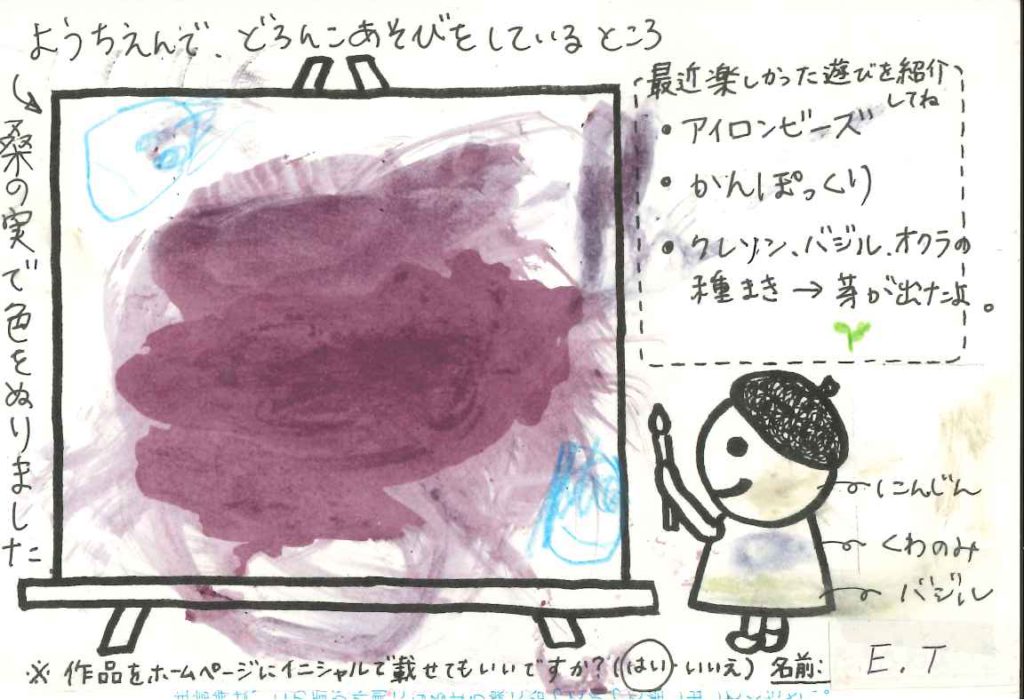 ようちえんで、どろんこあそびをしているところ
桑の実で色をぬりました
最近楽しかった遊びを紹介
してね
・アイロンビーズ
・かんぽっくり
・クレソン、バジル、オクラの
種まき→芽が出たよ。
にんじん
くわのみ
バジル
※作品をホームページにイニシャルで載せてもいいですか?(はい・いいえ) 名前: E.T